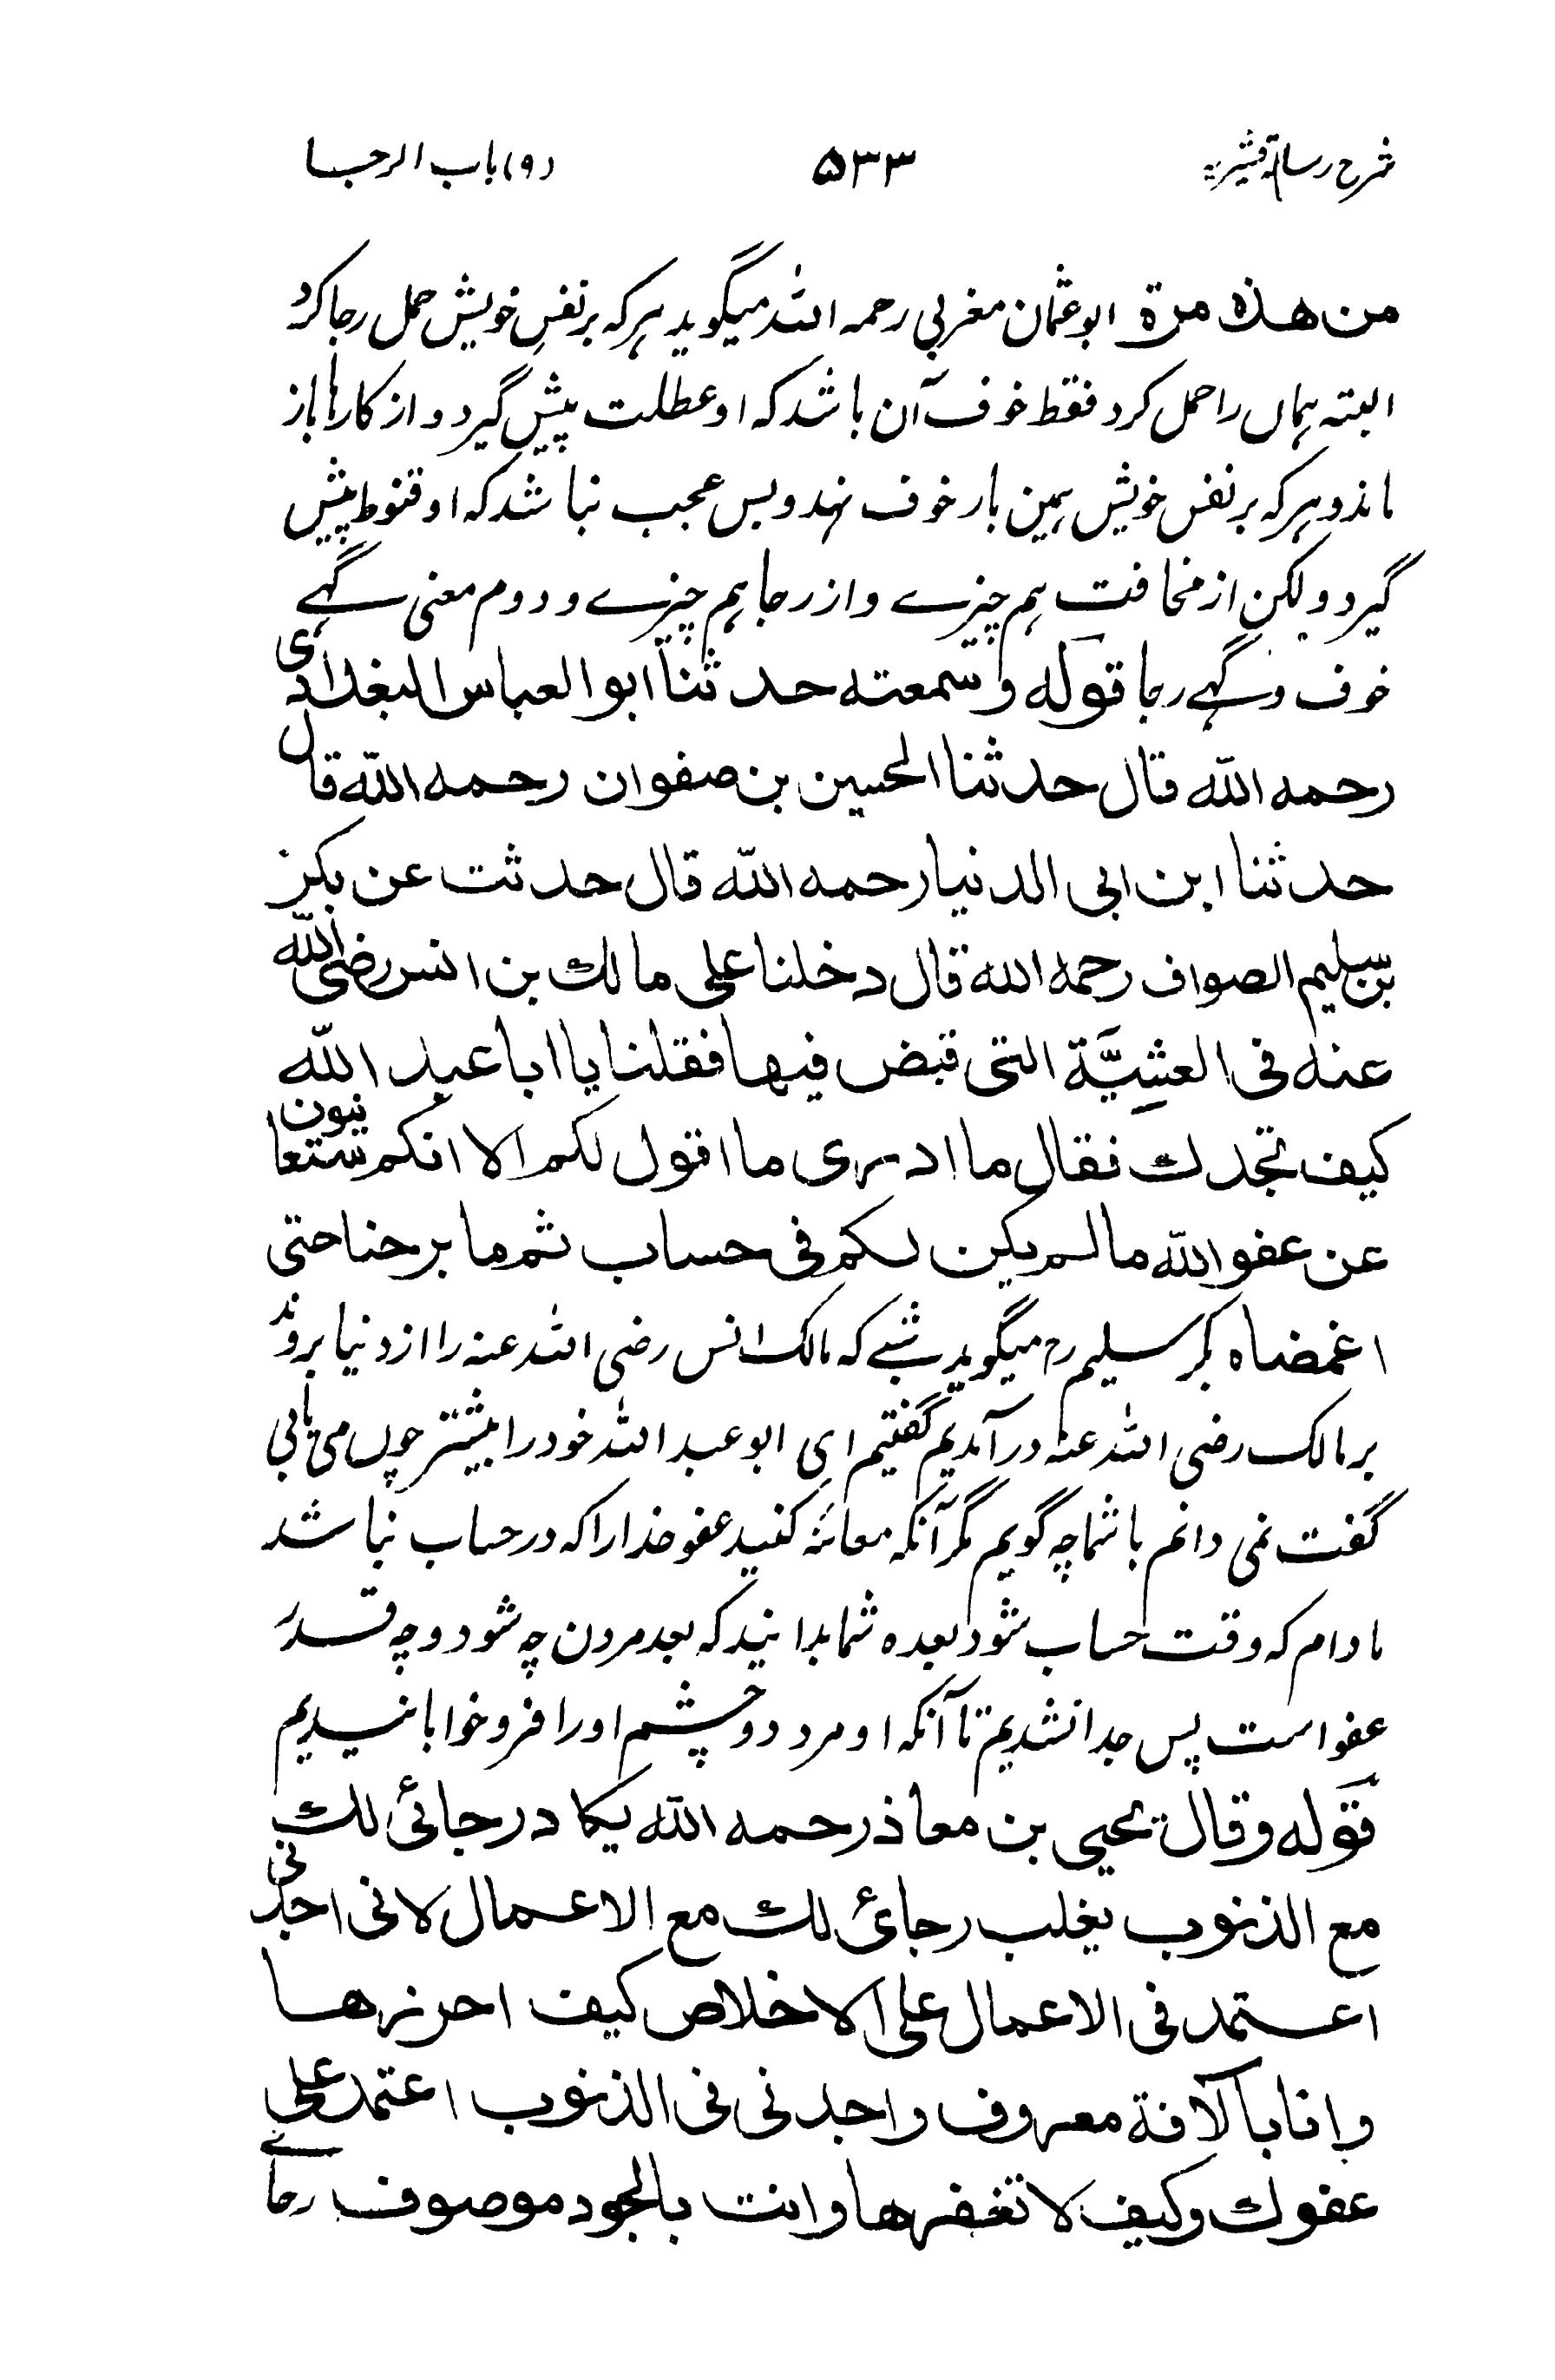 شرح رسالۂ قشیریہ ۵۳۳ (۹) باب الرجا
من هذه مرة ابو عثمان مغربی رحمہ اللہ میگوید ہر کہ بر نفس خویش حمل رجا کرد
البتہ ہماں را حمل کرد فقط خوف آن باشد کہ او عطلت پیش گیرد و از کارہا باز
ماند و ہر کہ بر نفس خویش ہمین بار خوف نہد و بس عجب نباشد کہ او قنوط پیش
گیرد و لکن از مخافت ہم چیزے و از رجا ہم چیزے و دوم معنی گہے
خوف و گہے رجا قوله وسمعته حدثنا ابو العباس البغدادی
رحمه الله قال حدثنا الحسین بن صفوان رحمه الله قال
حدثنا ابن ابی الدنیا رحمه الله قال حدثت عن بکر
بن سلیم الصواف رحمه الله قال دخلنا علی مالك بن انس رضی الله
عنه فی العشِیَّة التی قبض فیها فقلنا یا ابا عبد الله
کیف تجدك فقال ما ادری ما اقول لکم الا انکم ستعاینون
عن عفو الله مالم یکن لکم فی حساب ثم ما برحنا حتی
اغمضناه بکر سلیم رح میگوید شبے کہ مالک انس رضی اللہ عنہ را از دنیا بروند
بر مالک رضی اللہ عنہ در آمدیم گفتیم ای ابو عبد اللہ خود را بیشتر چوں می یابی
گفت نمی دانم با شما چہ گویم مگر آنکہ معائنہ کنید عفو خدا را کہ در حساب نباشد
مادام کہ وقت حساب شود بعدہ شما بدانید کہ بعد مردن چہ شود و چہ قدر
عفو است پس جدا نشدیم تا آنکہ او مرد دو چشم او را فرو خوابانیدیم
قوله وقال یحیی بن معاذ رحمه الله یکاد رجائی لك
مع الذنوب یغلب رجائ لك مع الاعمال لانی اجدنی
اعتمد فی الاعمال علی الاخلاص کیف احرزها
وانا بالآفة معروف واجدنی فی الذنوب اعتمد علی
عفوك وکیف لا تغفرها وانت بالجود موصوف رجاے